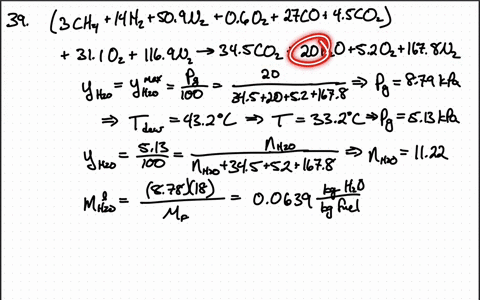 39. (3CH4 + 14H2 + 50.9N2 + 0.6O2 + 27CO + 4.5CO2)
+ 31.1O2 + 116.9N2 → 34.5CO2 + 20H2O + 5.2O2 + 167.8N2
yH2O = yH2O^max = Pg/100 = 20/(34.5+20+5.2+167.8) ⇒ Pg = 8.79 kPa
⇒ Tdew = 43.2°C ⇒ T = 33.2°C ⇒ Pg = 5.13 kPa
yH2O = 5.13/100 = nH2O/(nH2O + 34.5 + 5.2 + 167.8) ⇒ nH2O = 11.22
mH2O^l = (8.78)(18)/MF = 0.0639 kg H2O/kg fuel